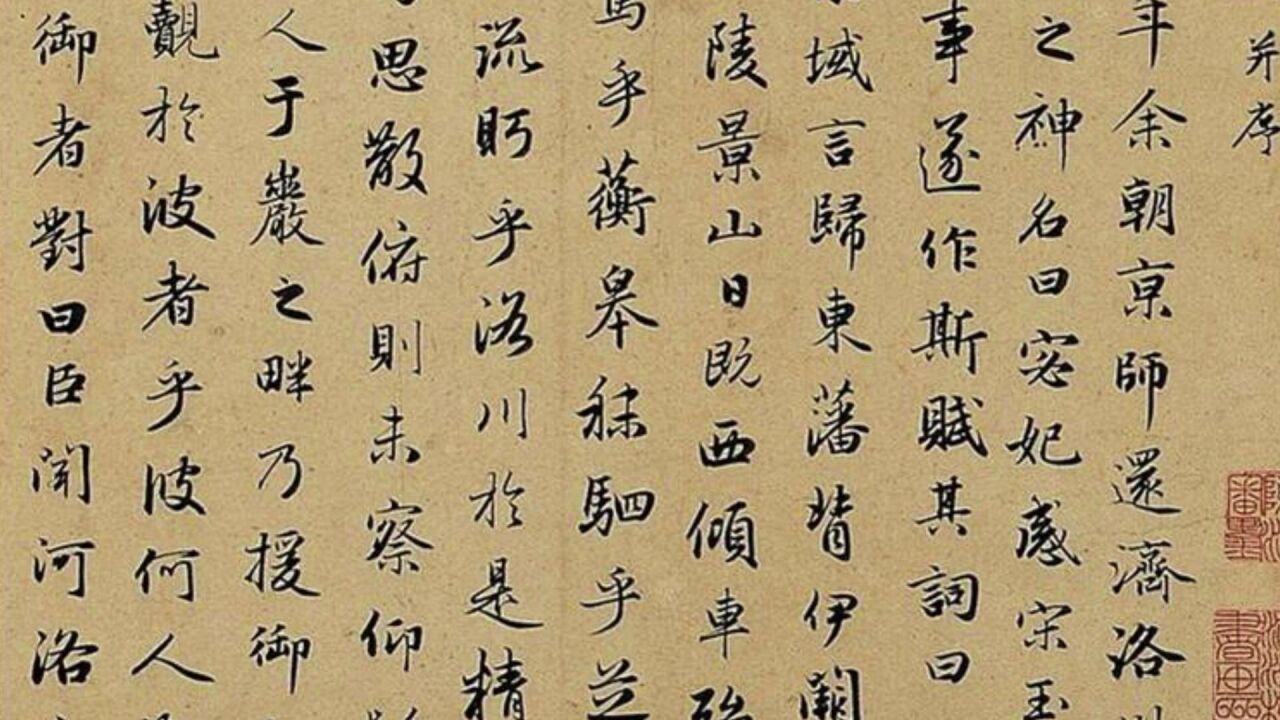 并序
年余朝京師還濟洛川
之神名曰宓妃感宋玉
事遂作斯賦其詞曰
域言歸東藩背伊闕
陵景山日既西傾車殆
焉乎蘅皋秣駟乎芝
流眄乎洛川於是精
思散俯則未察仰
人于巖之畔乃援御
覿於彼者乎彼何人
御者對曰臣聞河洛